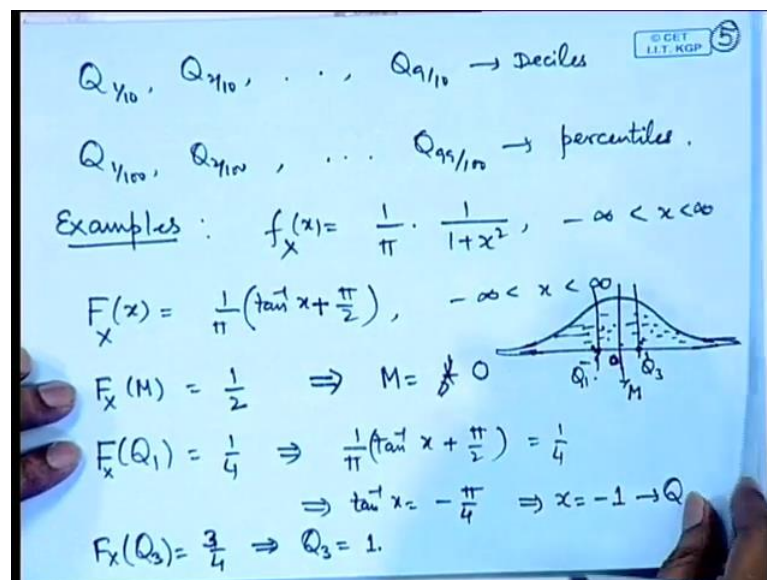 © CET
I.I.T. KGP
5
Q_{1/10}, Q_{2/10}, . . ., Q_{9/10} → Deciles
Q_{1/100}, Q_{2/100}, ... Q_{99/100} → percentiles.
Examples : f_X(x) = 1/π · 1/(1+x²), −∞ < x < ∞
F_X(x) = 1/π (tan⁻¹ x + π/2), −∞ < x < ∞
F_X(M) = 1/2 ⇒ M = 0
Q₁ 0 M Q₃
F_X(Q₁) = 1/4 ⇒ 1/π (tan⁻¹ x + π/2) = 1/4
⇒ tan⁻¹ x = − π/4 ⇒ x = −1 → Q
F_X(Q₃) = 3/4 ⇒ Q₃ = 1.